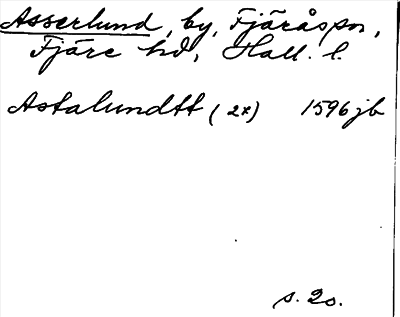 Asserlund, by, Fjäråspn,
Fjäre hd, Hall. l.
Astalundtt (2x) 1596 jb
s. 20.